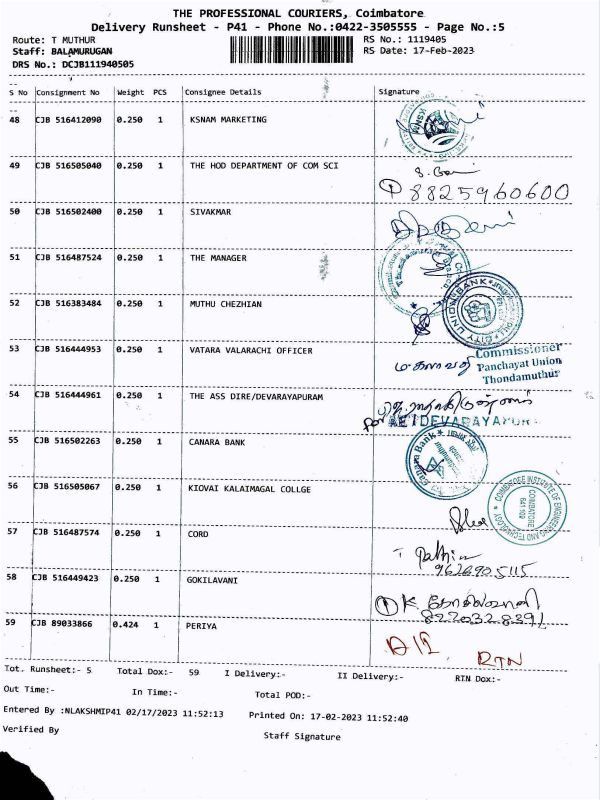 THE PROFESSIONAL COURIERS, Coimbatore
Delivery Runsheet - P41 - Phone No.:0422-3505555 - Page No.:5
Route: T MUTHUR
RS No.: 1119405
Staff: BALAMURUGAN
RS Date: 17-Feb-2023
DRS No.: DCJB111940505
S No Consignment No Weight PCS Consignee Details Signature
48 CJB 516412090 0.250 1 KSNAM MARKETING
49 CJB 516505040 0.250 1 THE HOD DEPARTMENT OF COM SCI
8825960600
50 CJB 516502400 0.250 1 SIVAKMAR
51 CJB 516487524 0.250 1 THE MANAGER
52 CJB 516383484 0.250 1 MUTHU CHEZHIAN
CITY UNION BANK
53 CJB 516444953 0.250 1 VATARA VALARACHI OFFICER
Commissioner
Panchayat Union
Thondamuthur
54 CJB 516444961 0.250 1 THE ASS DIRE/DEVARAYAPURAM
for AETDEVARAYAPUR
55 CJB 516502263 0.250 1 CANARA BANK
Canara Bank
56 CJB 516505067 0.250 1 KIOVAI KALAIMAGAL COLLGE
COIMBATORE INSTITUTE OF ENGINEERING AND TECHNOLOGY
COIMBATORE
641 109
57 CJB 516487574 0.250 1 CORD
9626905115
58 CJB 516449423 0.250 1 GOKILAVANI
K. கோகிலவாணி
8220328391
59 CJB 89033866 0.424 1 PERIYA
RTN
Tot. Runsheet:- 5 Total Dox:- 59 I Delivery:- II Delivery:- RTN Dox:-
Out Time:- In Time:- Total POD:-
Entered By :NLAKSHMIP41 02/17/2023 11:52:13 Printed On: 17-02-2023 11:52:40
Verified By Staff Signature